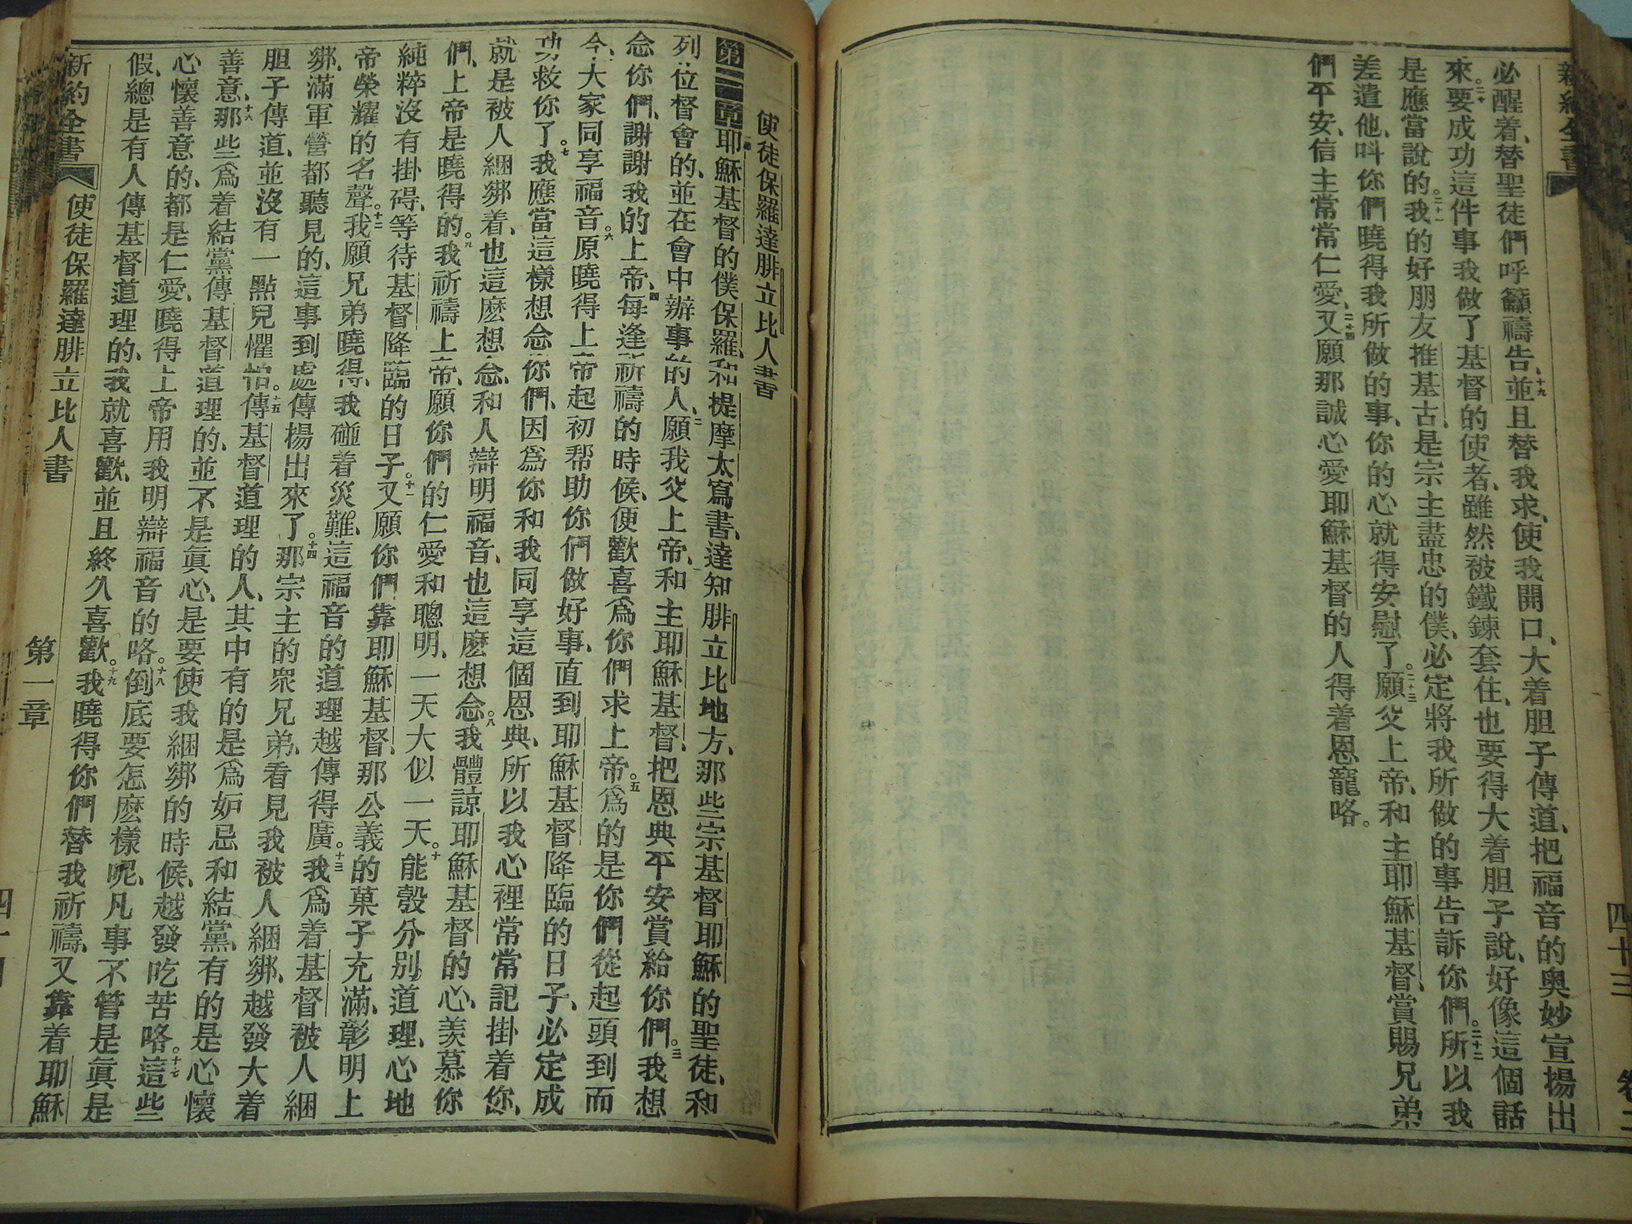 新約全書
四十三
必醒着、替聖徒們呼籲禱告、十九並且替我求、使我開口、大着胆子傳道、把福音的奧妙宣揚出
來。二十要成功這件事、我做了基督的使者、雖然被鐵鍊套住、也要得大着胆子說、好像這個話
是應當說的。二十一我的好朋友推基古、是宗主盡忠的僕、必定將我所做的事告訴你們。二十二所以我
差遣他、叫你們曉得我所做的事、你的心就得安慰了。二十三願父上帝、和主耶穌基督、賞賜兄弟
們平安、信主常常仁愛、二十四又願那誠心愛耶穌基督的人得着恩寵咯。
使徒保羅達腓立比人書
第一章耶穌基督的僕保羅、和提摩太寫書、達知腓立比地方、那些宗基督耶穌的聖徒、和
列位督會的、並在會中辦事的人、二願我父上帝、和主耶穌基督、把恩典平安賞給你們。三我想
念你們、謝謝我的上帝、四每逢祈禱的時候、便歡喜爲你們求上帝。五爲的是你們從起頭到而
今、大家同享福音。六原曉得上帝起初帮助你們做好事、直到耶穌基督降臨的日子、必定成
功救你了。七我應當這樣想念你們、因爲你和我同享這個恩典、所以我心裡常常記掛着你、
就是被人綑綁着、也這麽想念、和人辯明福音、也這麽想念。八我體諒耶穌基督的心、羨慕你
們、上帝是曉得的。九我祈禱上帝、願你們的仁愛和聰明、一天大似一天。十能彀分別道理、心地
純粹沒有掛碍、等待基督降臨的日子。十一又願你們靠耶穌基督、那公義的菓子充滿、彰明上
帝榮耀的名聲。十二我願兄弟曉得、我碰着災難、這福音的道理越傳得廣。十三我爲着基督被人綑
綁、滿軍營都聽見的、這事到處傳揚出來了。十四那宗主的衆兄弟、看見我被人綑綁、越發大着
胆子傳道、並沒有一點兒懼怕。十五傳基督道理的人、其中有的是爲妒忌和結黨、有的是心懷
善意、十六那些爲着結黨傳基督道理的、並不是眞心、是要使我綑綁的時候、越發吃苦咯。十七這些
心懷善意的、都是仁愛、曉得上帝用我明辯福音的咯。十八倒底要怎麽樣呢、凡事不管是眞是
假、總是有人傳基督道理的、我就喜歡、並且終久喜歡。十九我曉得你們替我祈禱、又靠着耶穌
新約全書 使徒保羅達腓立比人書 第一章